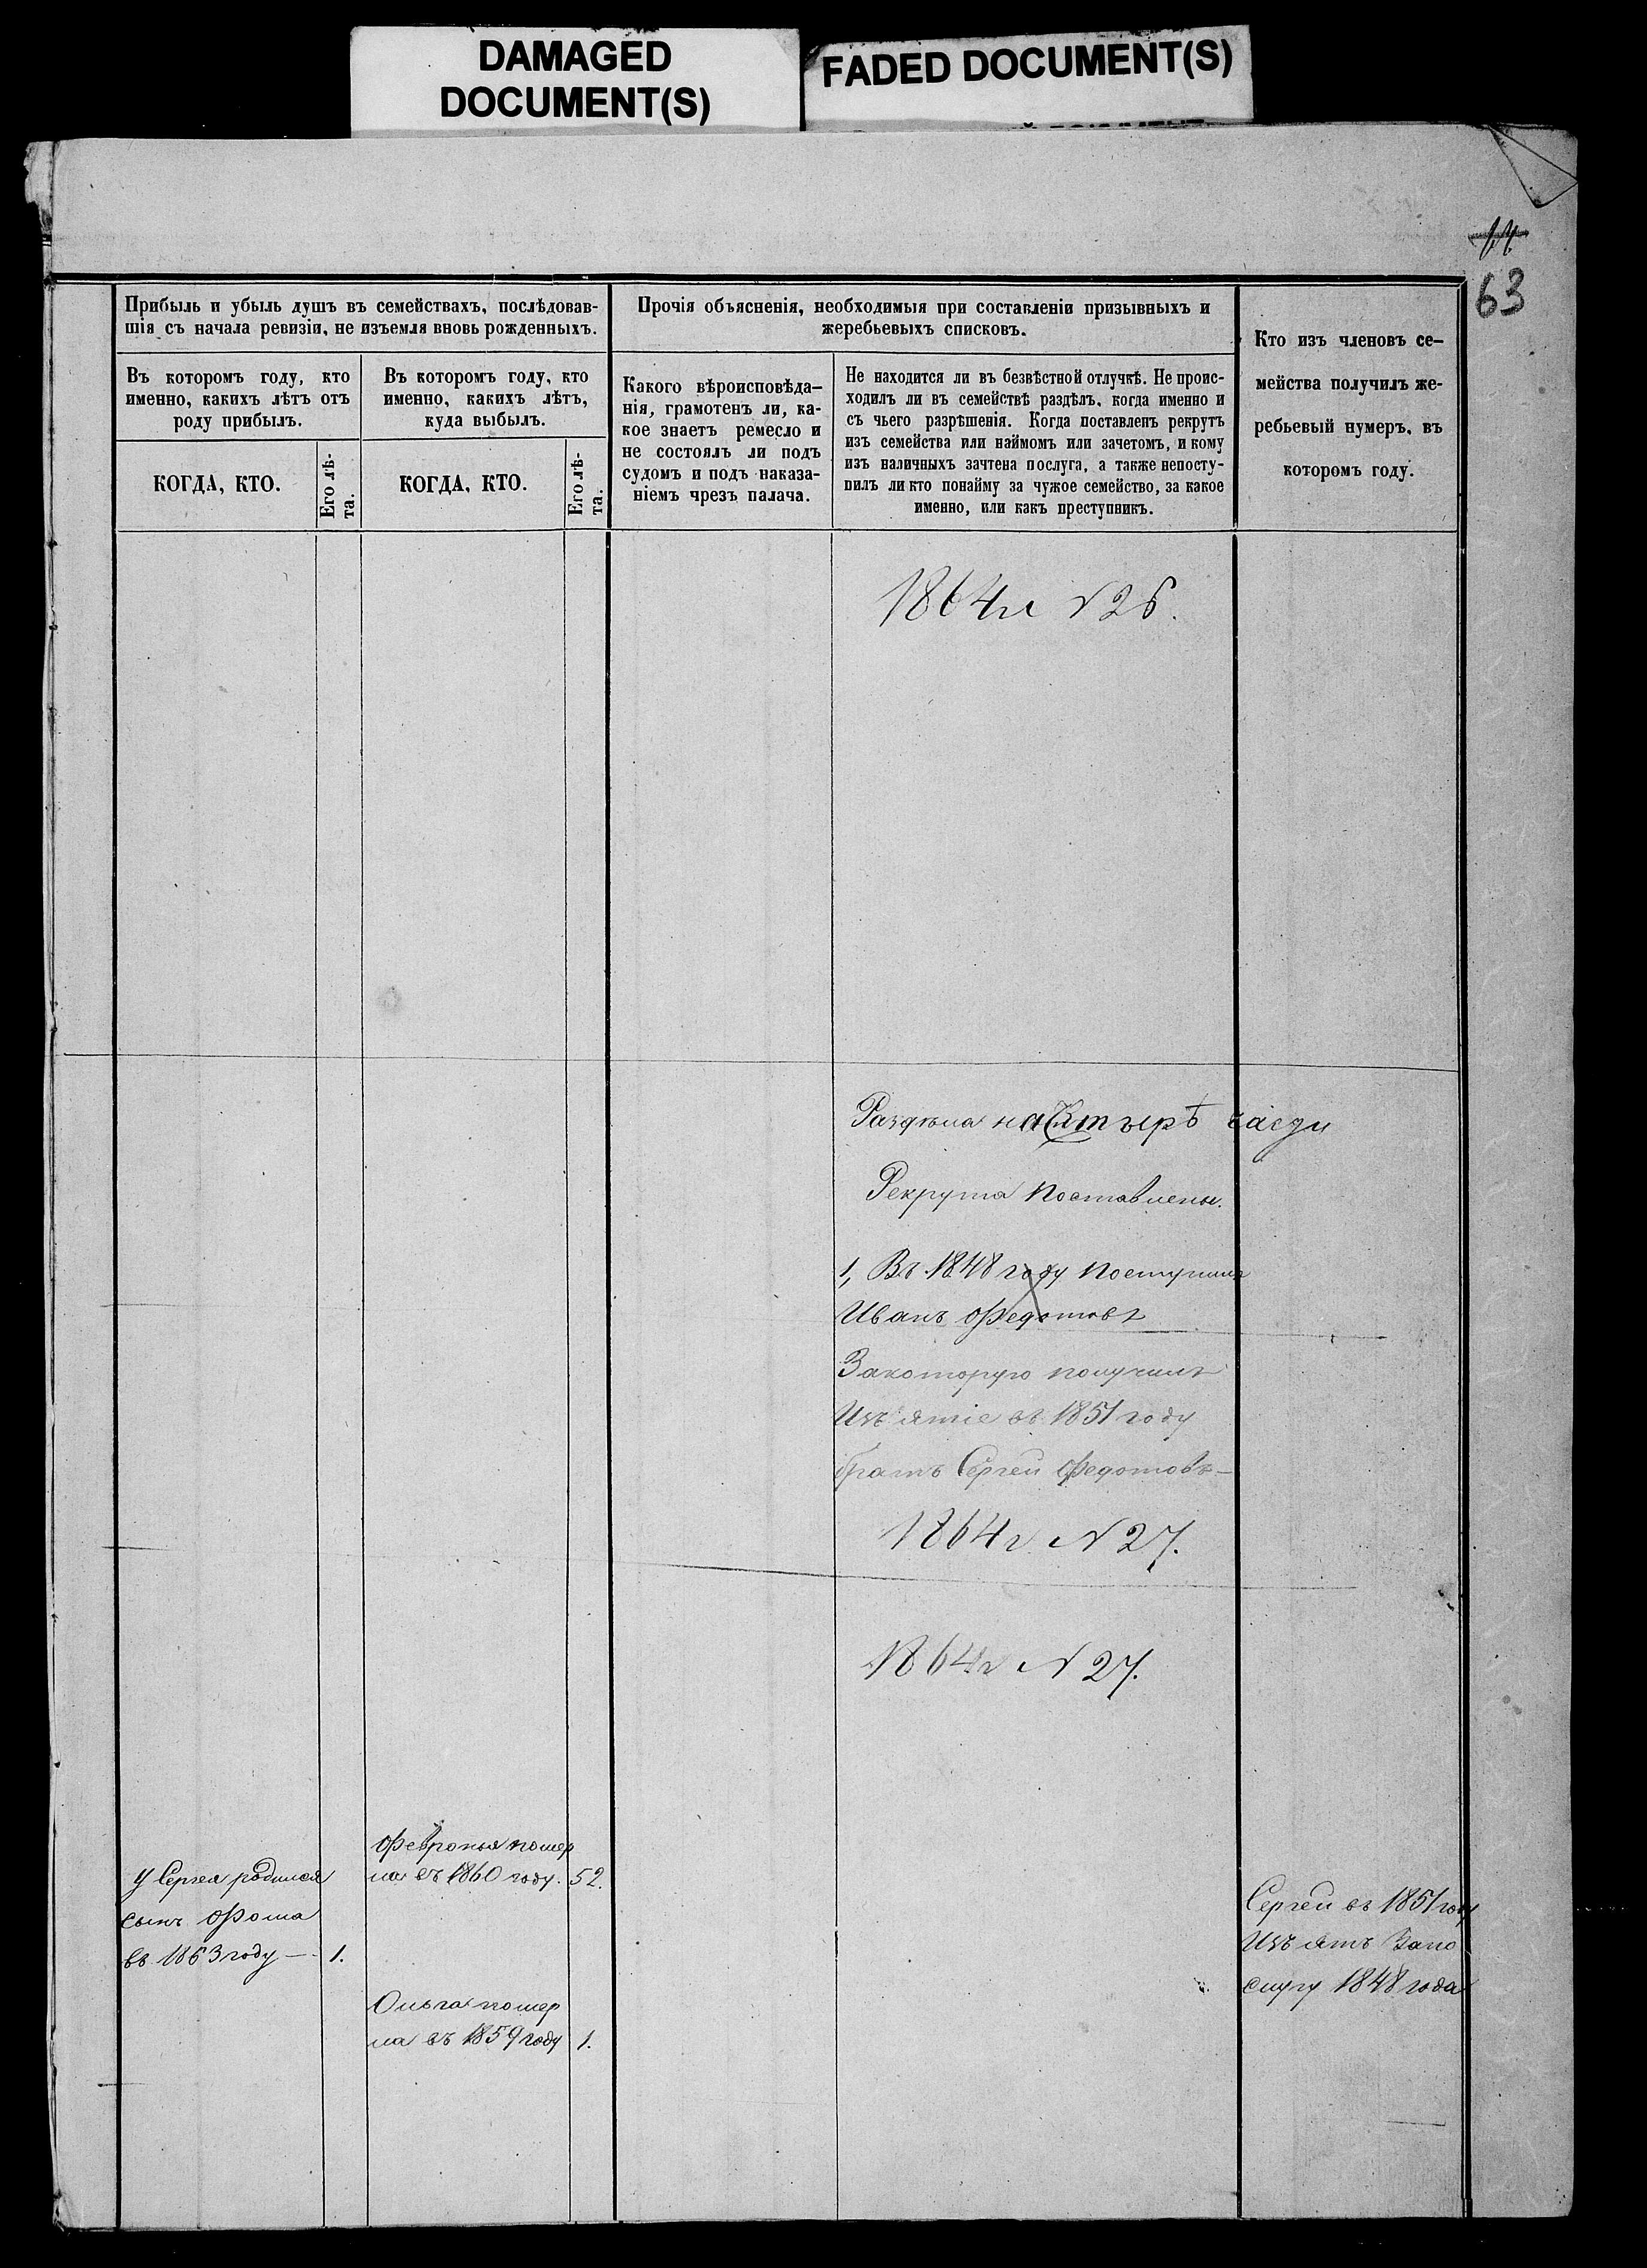 DAMAGED
DOCUMENT(S)
FADED DOCUMENT(S)
63
Прибыль и убыль душъ въ семействахъ, послѣдовав-
шія съ начала ревизіи, не изъемля вновь рожденныхъ.
Въ которомъ году, кто
именно, какихъ лѣтъ отъ
роду прибылъ.
КОГДА, КТО.
Его лѣ-
та.
Въ которомъ году, кто
именно, какихъ лѣтъ,
куда выбылъ.
КОГДА, КТО.
Его лѣ-
та.
Прочія объясненія, необходимыя при составленіи призывныхъ и
жеребьевыхъ списковъ.
Какого вѣроисповѣда-
нія, грамотенъ ли, ка-
кое знаетъ ремесло и
не состоялъ ли подъ
судомъ и подъ наказа-
ніемъ чрезъ палача.
Не находится ли въ безвѣстной отлучкѣ. Не проис-
ходилъ ли въ семействѣ раздѣлъ, когда именно и
съ чьего разрѣшенія. Когда поставленъ рекрутъ
изъ семейства или наймомъ или зачетомъ, и кому
изъ наличныхъ зачтена послуга, а также непосту-
пилъ ли кто понайму за чужое семейство, за какое
именно, или какъ преступникъ.
Кто изъ членовъ се-
мейства получилъ же-
ребьевый нумеръ, въ
которомъ году.
1864г N 26.
Рекрута поставлены.
1, Въ 1848 году поступилъ
Иванъ Федотовъ
Закоторую получилъ
Изъятіе въ 1851 году
братъ Сергей Федотовъ
1864г N 27.
1864г N 27.
У Сергея родился
сынъ Фома
въ 1863 году — 1.
Февронья помер
ла въ 1860 году. 52.
Ольга помер
ла въ 1859 году 1.
Сергей въ 1851 году
Изъятъ Запо
слугу 1848 года